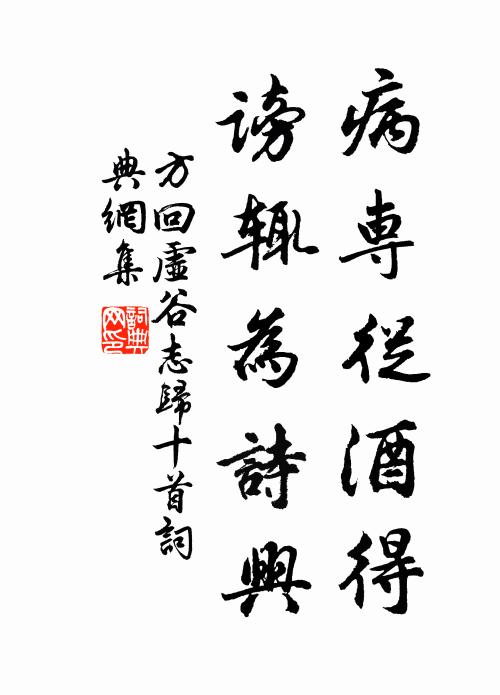 病専從酒得
謗輙為詩興
方回虛谷志歸十首詞
典網集
詞典
网印